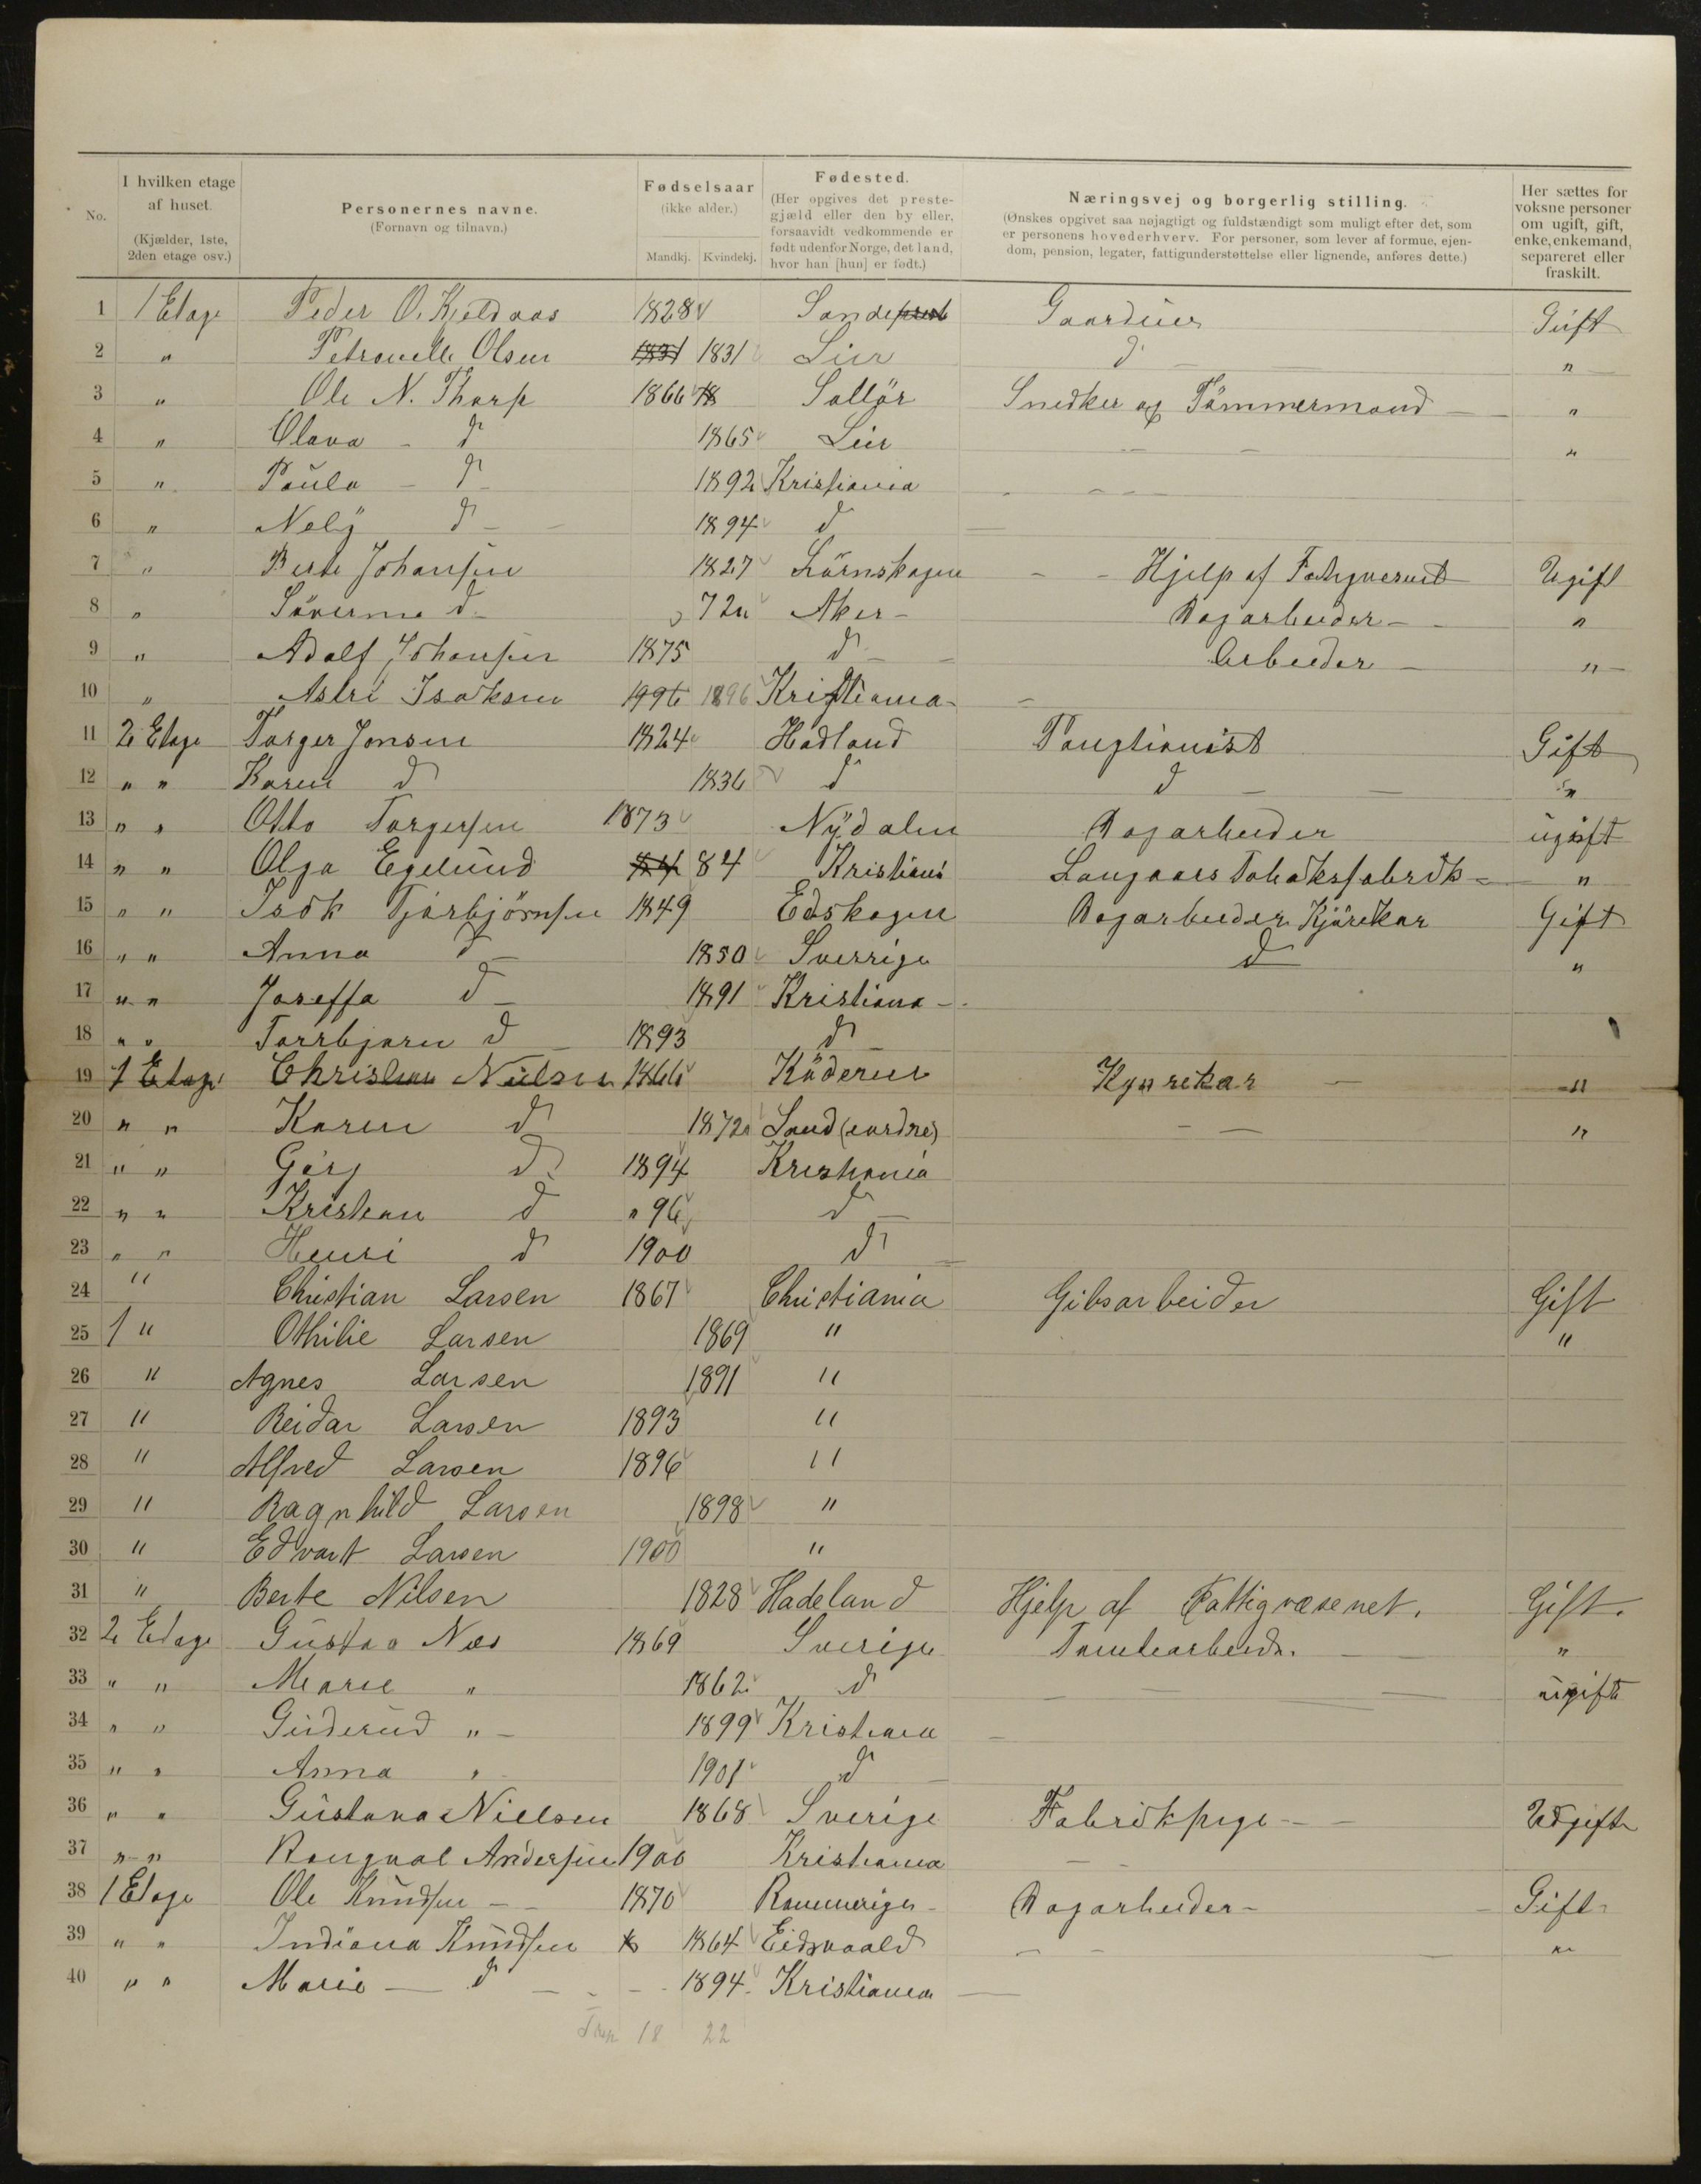 No.	I hvilken etage af huset. (Kjælder, 1ste, 2den etage osv.)	Personernes navne. (Fornavn og tilnavn.)	Fødselsaar (ikke alder.) Mandkj. Kvindekj.	Fødested. (Her opgives det prestegjæld eller den by eller, forsaavidt vedkommende er født udenfor Norge, det land, hvor han [hun] er født.)	Næringsvej og borgerlig stilling. (Ønskes opgivet saa nøjagtigt og fuldstændigt som muligt efter det, som er personens hovederhverv. For personer, som lever af formue, ejendom, pension, legater, fattigunderstøttelse eller lignende, anføres dette.)	Her sættes for voksne personer om ugift, gift, enke, enkemand, separeret eller fraskilt.
1 1 Etage Peder O. Kjeldaas 1828 Sande Gaardeier Gift
2 " Petronelle Olsen 1831 1831 Lier d "
3 " Ole N. Thorp 1866 18 Sollör Snedker og Tömmermand "
4 " Olava d 1865 Lier "
5 " Paula d 1892 Kristiania
6 " Nely d 1894 d
7 " Berte Johansen 1827 Lörnskogen Hjelp af Ugift
8 " d 72 Aker Dagarbeider "
9 " Adolf Johansen 1875 d Arbeider "
10 " Astri Isaksen 1996 1896 Kristiania
11 2 Etage Torger Jonsen 1824 Hadland Pangtionist Gift
12 " " Karen d 1836 d d "
13 " " Otto Torgersen 1873 Nydalen Dagarbeider ugift
14 " " Olga Egelund 84 Kristiani Langaars Tobaksfabrik "
15 " " Isak Tjorbjörnsen 1849 Edskogen Dagarbeider Kjörekar Gift
16 " " Anna d 1850 Sverrige d "
17 " " Joseffa d 1891 Kristiana
18 " " Torrbjorn d 1893 d
19 1 Etage Christian Nielsen 1866 Röderen Kyörekar "
20 " " Karen d 1872 Land (nordre) "
21 " " Görg d 1894 Kristiania
22 " " Kristian d " 96 d
23 " " Henri d 1900 d
24 " Christian Larsen 1867 Christiania Gibsarbeider Gift
25 1 " Othilie Larsen 1869 " "
26 " Agnes Larsen 1891 "
27 " Reidar Larsen 1893 "
28 " Alfred Larsen 1896 "
29 " Ragnhild Larsen 1898 "
30 " Edvart Larsen 1900 "
31 " Berte Nilsen 1828 Hadeland Hjelp af Fattigvæsenet. Gift.
32 2 Etage Gustav Næs 1869 Sverige Tomtearbeider. "
33 " " Marie " 1862 d ugift
34 " " Guderud " 1899 Kristiania
35 " " Anna " 1901 d
36 " " Gustava Nielsen 1868 Sverige Fabrikpige Ugift
37 " " Rangval Andersen 1900 Kristiania
38 1 Etage Ole Knudsen 1870 Romerige Dagarbeider Gift
39 " " Indiana Knudsen 1864 Eidsvaald "
40 " " Marie d 1894 Kristiania
18 22